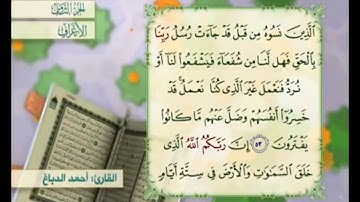 الجزء الثامن
الأعراف
ٱلَّذِينَ نَسُوهُ مِن قَبْلُ قَدْ جَآءَتْ رُسُلُ رَبِّنَا
بِٱلْحَقِّ فَهَل لَّنَا مِن شُفَعَآءَ فَيَشْفَعُوا۟ لَنَآ أَوْ
نُرَدُّ فَنَعْمَلَ غَيْرَ ٱلَّذِى كُنَّا نَعْمَلُ ۚ قَدْ
خَسِرُوٓا۟ أَنفُسَهُمْ وَضَلَّ عَنْهُم مَّا كَانُوا۟
يَفْتَرُونَ ۝٥٣ إِنَّ رَبَّكُمُ ٱللَّهُ ٱلَّذِى
خَلَقَ ٱلسَّمَـٰوَٰتِ وَٱلْأَرْضَ فِى سِتَّةِ أَيَّامٍ
القارئ: أحمد الدباغ